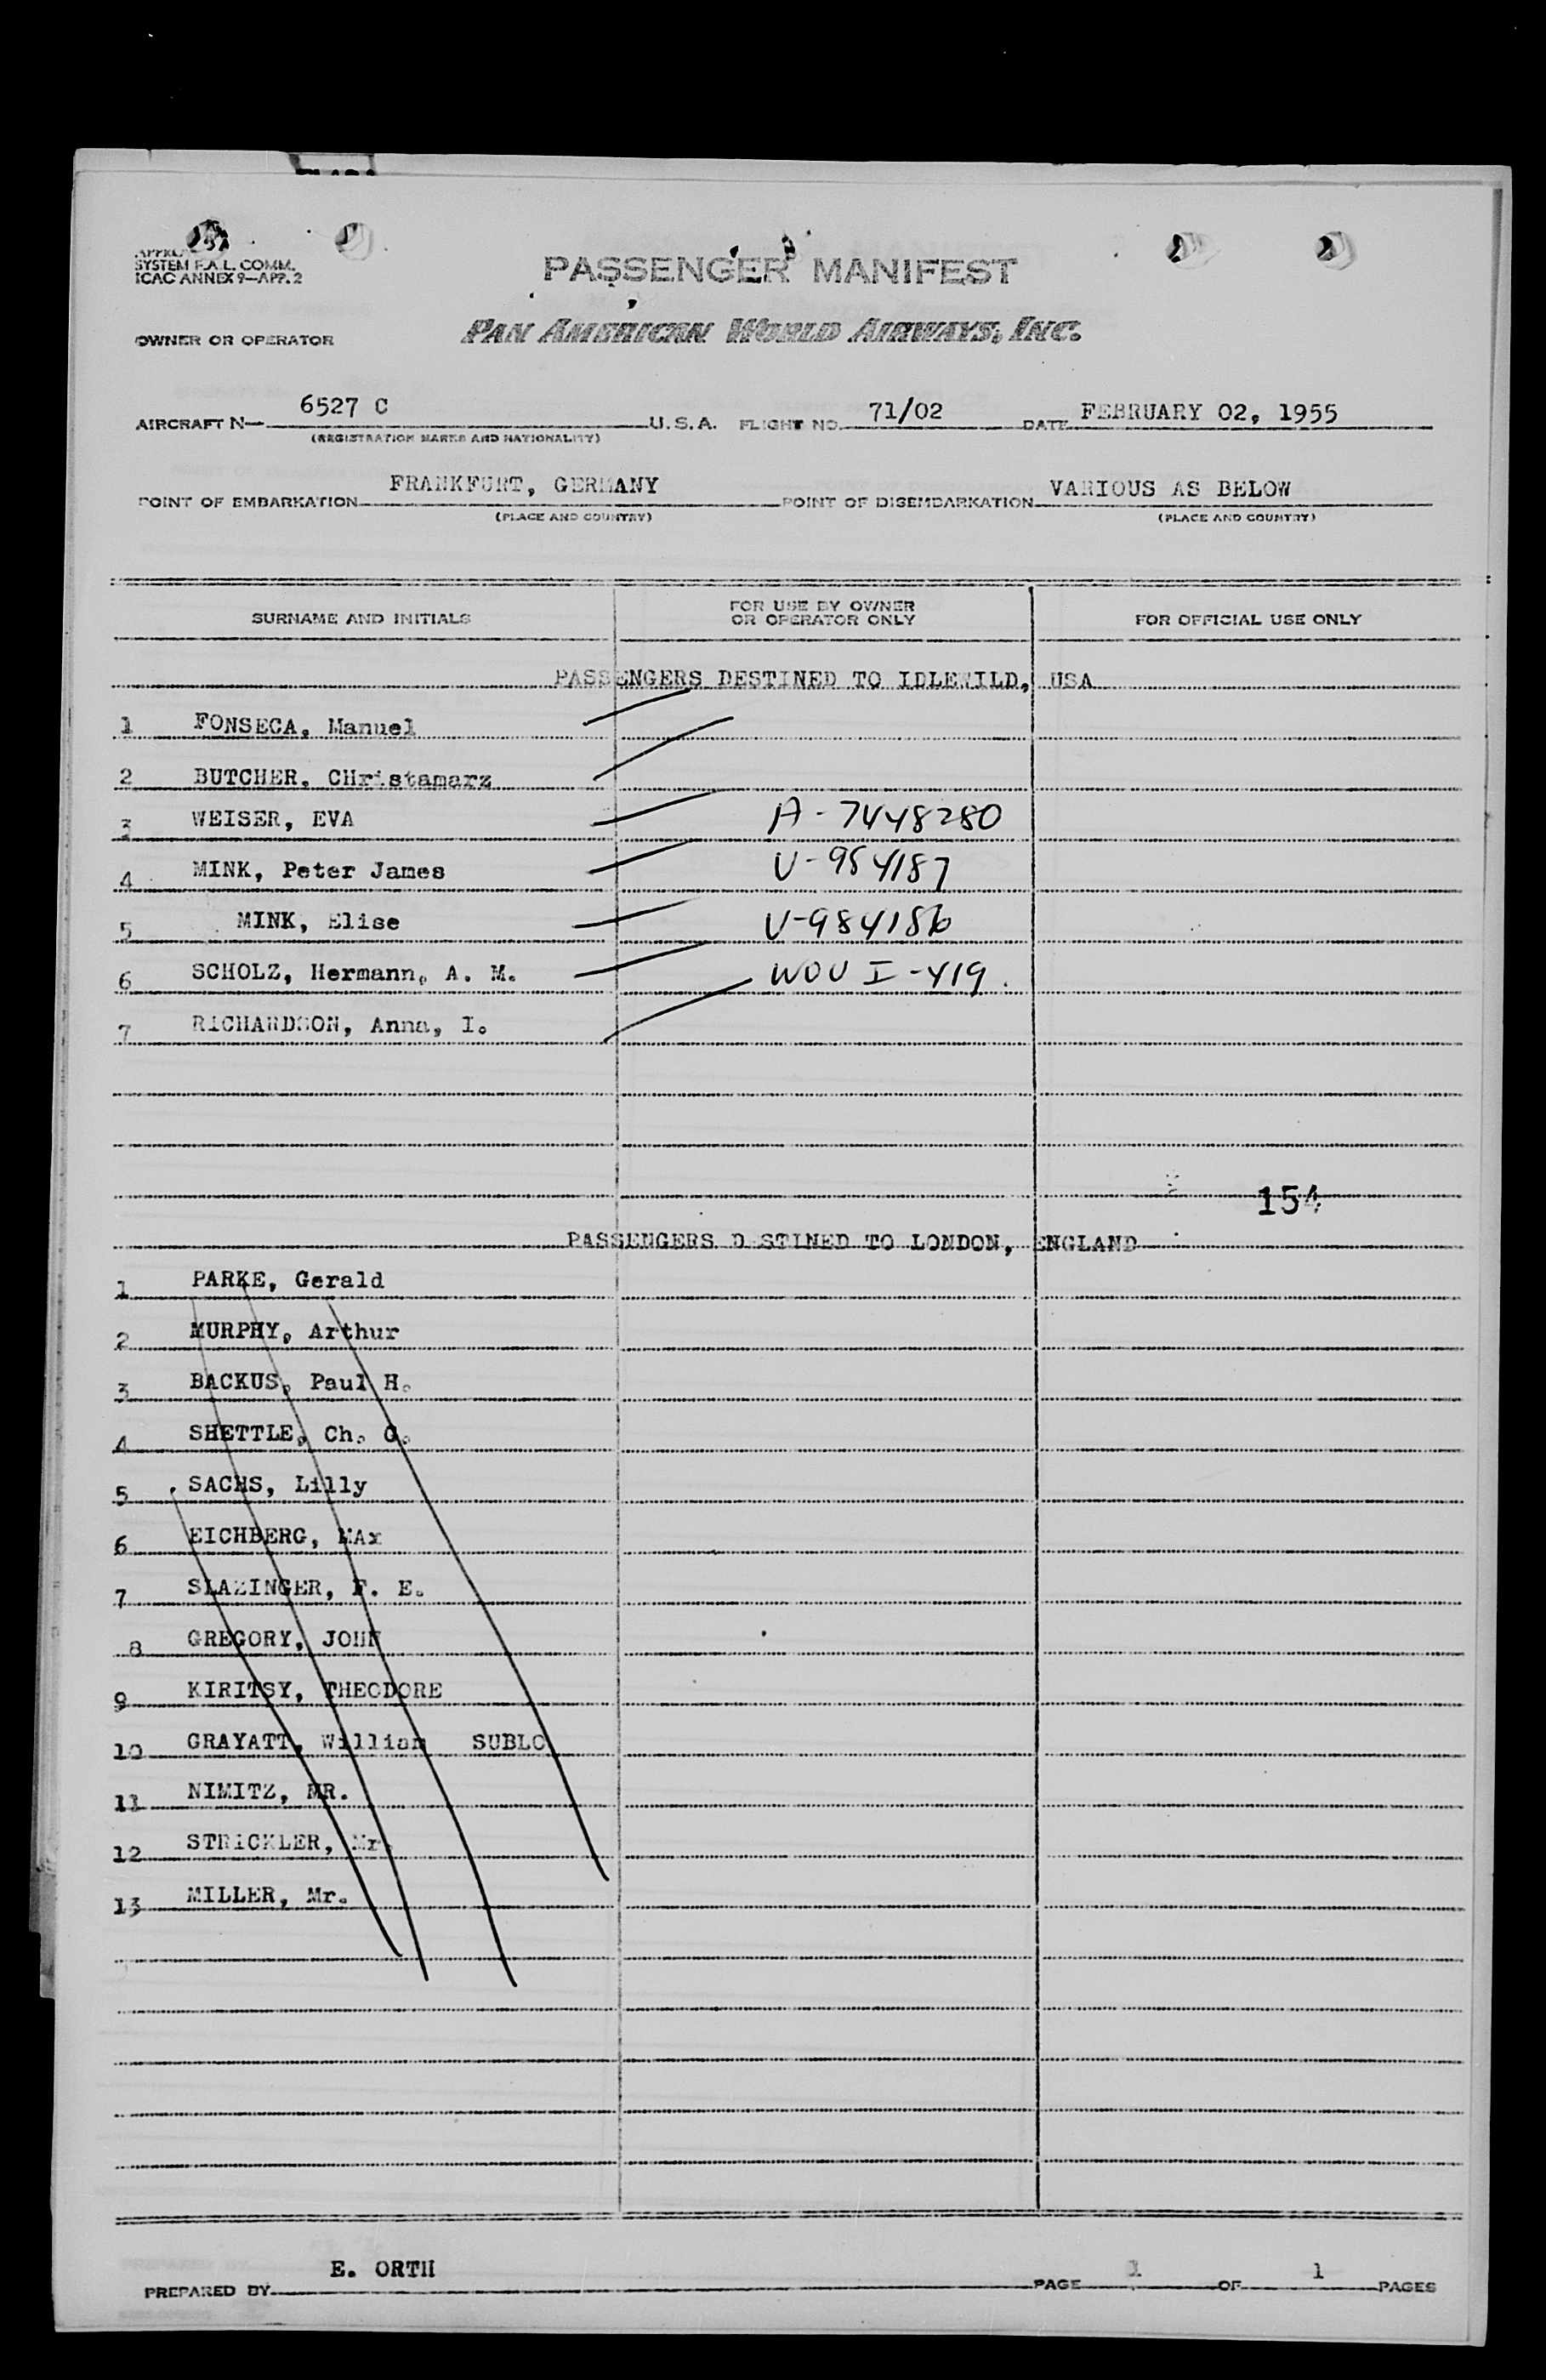 SYSTEM F.A.L. COMM.
ICAO ANNEX 9—APP. 2
PASSENGER MANIFEST
OWNER OR OPERATOR PAN AMERICAN WORLD AIRWAYS, INC.
AIRCRAFT N— 6527 C U.S.A. FLIGHT NO. 71/02 DATE FEBRUARY 02, 1955
(REGISTRATION MARKS AND NATIONALITY)
POINT OF EMBARKATION FRANKFURT, GERMANY POINT OF DISEMBARKATION VARIOUS AS BELOW
(PLACE AND COUNTRY) (PLACE AND COUNTRY)
SURNAME AND INITIALS FOR USE BY OWNER OR OPERATOR ONLY FOR OFFICIAL USE ONLY
PASSENGERS DESTINED TO IDLEWILD, USA
1 FONSECA, Manuel
2 BUTCHER, CHristamarz
3 WEISER, EVA A-7448280
4 MINK, Peter James V-984187
5 MINK, Elise V-984186
6 SCHOLZ, Hermann, A. M. WOV I-419.
7 RICHARDSON, Anna, I.
154
PASSENGERS D STINED TO LONDON, ENGLAND
1 PARKE, Gerald
2 MURPHY, Arthur
3 BACKUS, Paul H.
4 SHETTLE, Ch. G.
5 SACHS, Lilly
6 EICHBERG, MAx
7 SLAZINGER, F. E.
8 GREGORY, JOHN
9 KIRITSY, THEODORE
10 GRAYATT, William SUBLO
11 NIMITZ, MR.
12 STRICKLER, Mr.
13 MILLER, Mr.
PREPARED BY E. ORTH PAGE 1 OF 1 PAGES